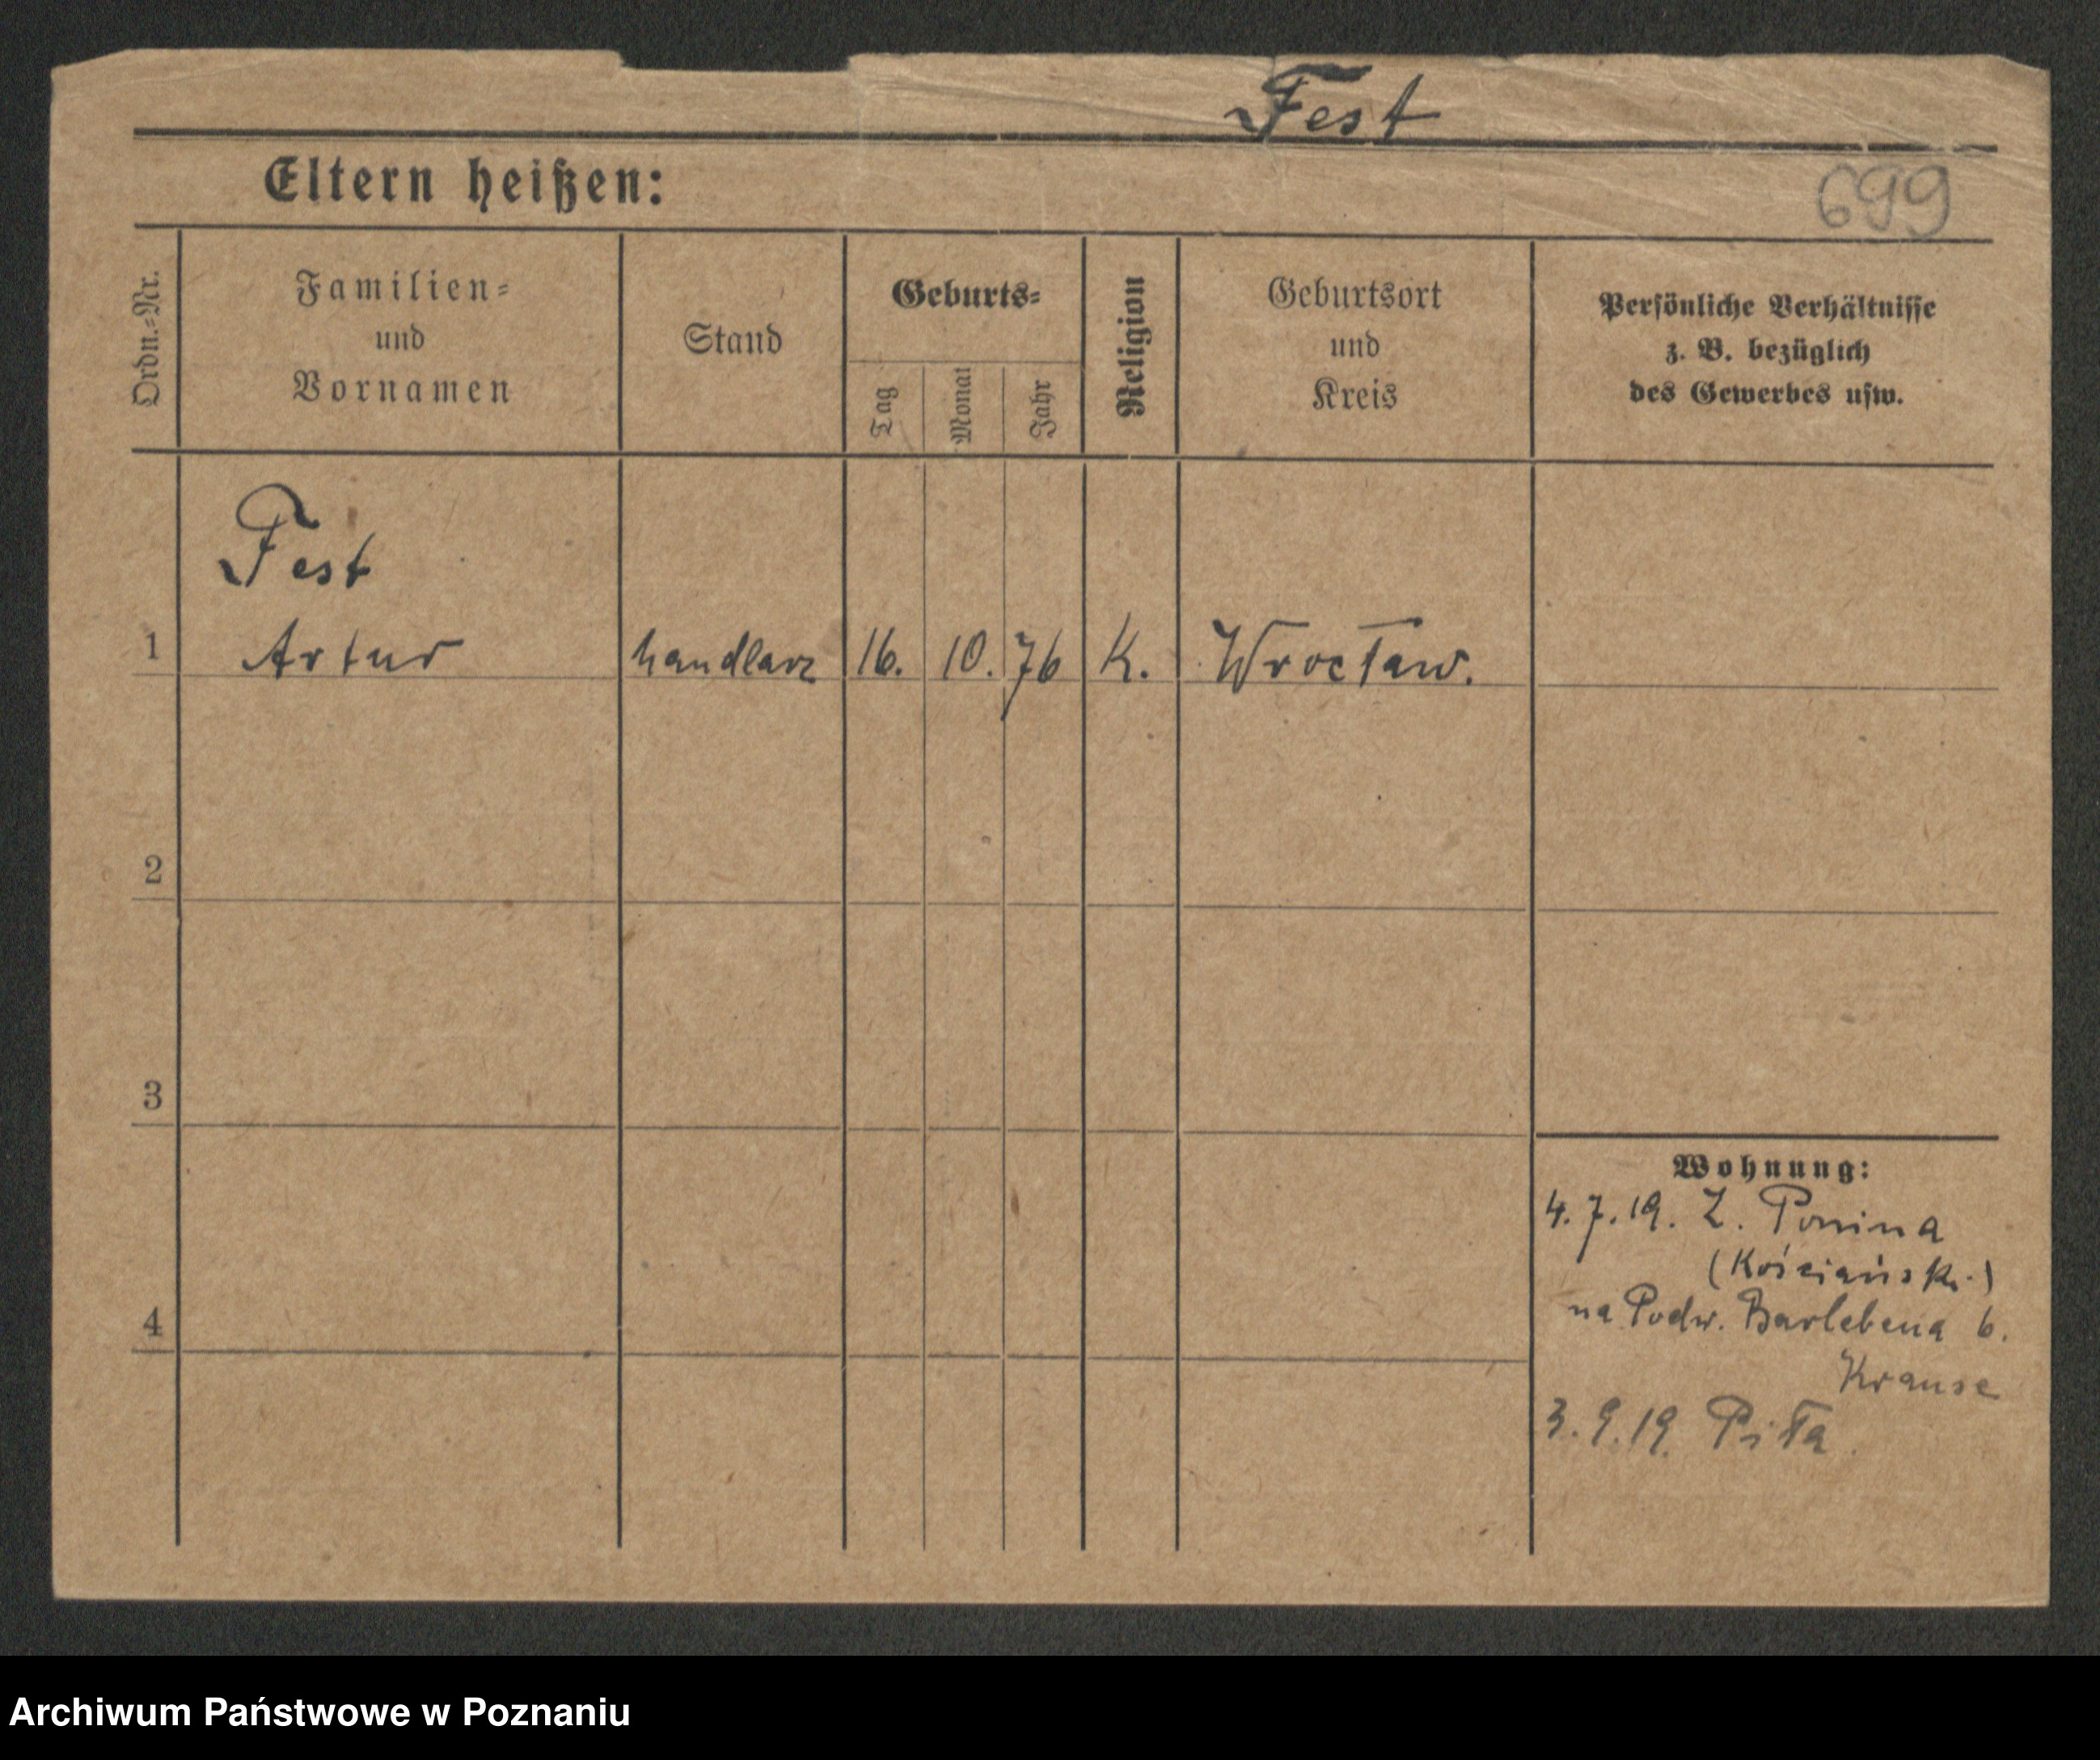 Fest
Eltern heißen:
699
Ordn.-Nr.
Familien-
und
Vornamen
Stand
Geburts-
Tag
Monat
Jahr
Religion
Geburtsort
und
Kreis
Persönliche Verhältnisse
z. B. bezüglich
des Gewerbes usw.
Fest
1 Artur handlarz 16. 10. 76 K. Wrocław.
2
3
Wohnung:
4. 7. 19. Z. Ponina
(Kościańsk.)
na Podw. Barlebena 6.
4
Krause
3. 9. 19. Piła.
Archiwum Państwowe w Poznaniu